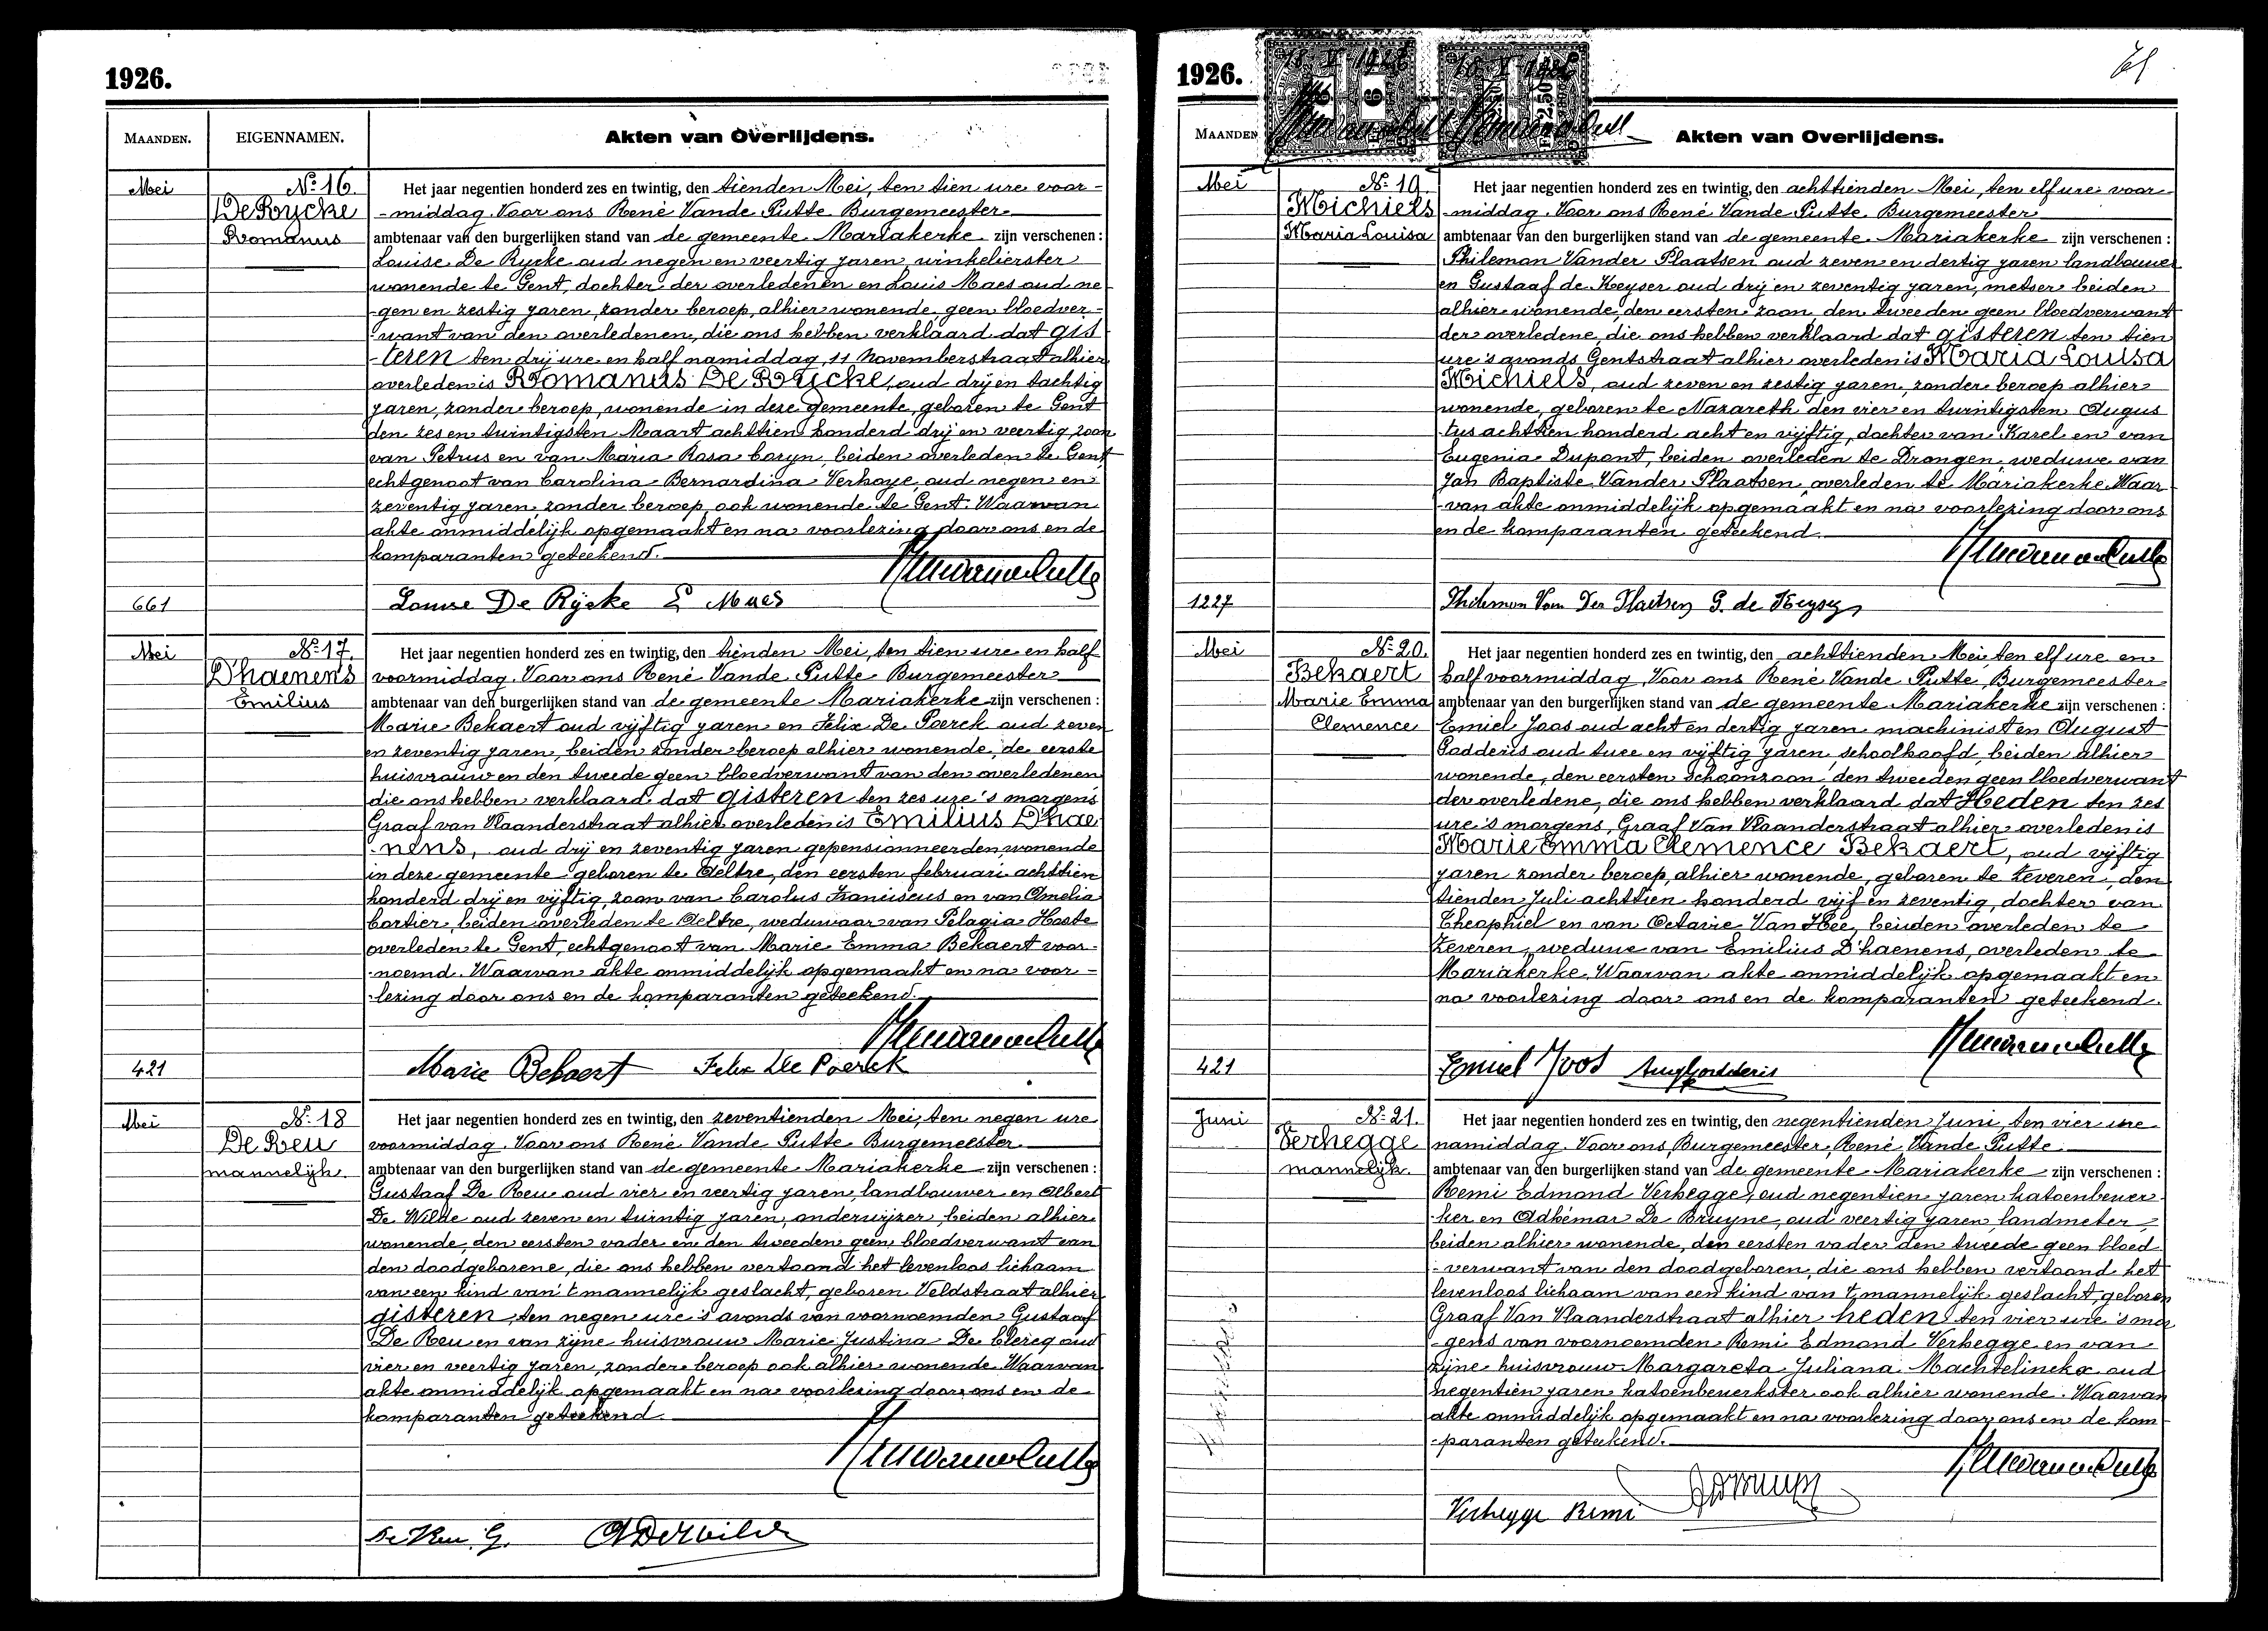 1926.
MAANDEN. EIGENNAMEN. Akten van Overlijdens.
Mei
Nº 16.
De Rycke
Romanus
Het jaar negentien honderd zes en twintig, den tienden Mei, ten tien ure voor-
-middag. Voor ons René Vande Putte Burgemeester
ambtenaar van den burgerlijken stand van de gemeente Mariakerke zijn verschenen :
Louise De Rycke oud negen en veertig jaren winkelierster
wonende te Gent, dochter der overledenen en Louis Maes oud ne
-gen en zestig jaren, zonder beroep, alhier wonende, geen bloedver-
-want van den overledenen, die ons hebben verklaard dat gis
-teren ten drij ure en half namiddag, 11 Novemberstraat alhier
overleden is Romanus De Rycke, oud drij en tachtig
jaren, zonder beroep, wonende in deze gemeente, geboren te Gent
den zes en twintigsten Maart achttien honderd drij en veertig, zoon
van Petrus en van Maria Rosa Coryn, beiden overleden te Gent
echtgenoot van Carolina Bernardina Verhoye, oud negen en
zeventig jaren, zonder beroep, ook wonende te Gent. Waarvan
akte onmiddelijk opgemaakt en na voorlezing door ons en de
komparanten geteekend.
661
Louise De Rÿcke L Maes
Mei
Nº 17.
D'haenens
Emilius
Het jaar negentien honderd zes en twintig, den tienden Mei, ten tien ure en half
voormiddag. Voor ons René Vande Putte Burgemeester
ambtenaar van den burgerlijken stand van de gemeente Mariakerke zijn verschenen :
Marie Bekaert oud vijftig jaren en Felix De Poerck oud zeven
en zeventig jaren, beiden zonder beroep alhier wonende, de eerste
huisvrouw en den tweede geen bloedverwant van den overledenen
die ons hebben verklaard dat gisteren ten zes ure 's morgens
Graaf van Vlaanderstraat alhier overleden is Emilius D'hae
-nens, oud drij en zeventig jaren gepensionneerden wonende
in deze gemeente geboren te Oeltre, den eersten februari achttien
honderd drij en vijftig, zoon van Carolus Franciscus en van Amelia
Cortier, beiden overleden te Oeltre, weduwaar van Pelagia Hoste
overleden te Gent, echtgenoot van Marie Emma Bekaert voor-
-noemd. Waarvan akte onmiddelijk opgemaakt en na voor-
-lezing door ons en de komparanten geteekend.
421
Marie Bekaert Felix De Poerck
Mei
Nº 18
De Reu
mannelijk.
Het jaar negentien honderd zes en twintig, den zeventienden Mei, ten negen ure
voormiddag. Voor ons René Vande Putte Burgemeester.
ambtenaar van den burgerlijken stand van de gemeente Mariakerke zijn verschenen :
Gustaaf De Reu oud vier en veertig jaren, landbouwer en Albert
De Wilde oud zeven en twintig jaren, onderwijzer, beiden alhier
wonende, den eersten vader en den tweeden geen bloedverwant van
den doodgeborene, die ons hebben vertoond het levenloos lichaam
van een kind van 't mannelijk geslacht, geboren Veldstraat alhier
gisteren, ten negen ure 's avonds van voornoemden Gustaaf
De Reu en van zijne huisvrouw Marie Justina De Clercq oud
vier en veertig jaren, zonder beroep ook alhier wonende. Waarvan
akte onmiddelijk opgemaakt en na voorlezing door ons en de
komparanten geteekend.
De Reu. G. A De Wilde
1926.
MAANDEN Akten van Overlijdens.
Mei
Nº 19.
Michiels
Maria Louisa
Het jaar negentien honderd zes en twintig, den achttienden Mei, ten elf ure voor-
-middag. Voor ons René Vande Putte Burgemeester
ambtenaar van den burgerlijken stand van de gemeente Mariakerke zijn verschenen :
Philemon Vander Plaatsen oud zeven en dertig jaren landbouwer
en Gustaaf de Keyser oud drij en zeventig jaren, metser beiden
alhier wonende, den eersten zoon, den tweeden geen bloedverwant
der overledene, die ons hebben verklaard dat gisteren ten tien
ure 's avonds Gentstraat alhier overleden is Maria Louisa
Michiels, oud zeven en zestig jaren, zonder beroep alhier
wonende, geboren te Nazareth den vier en twintigsten Augus
-tus achttien honderd acht en vijftig, dochter van Karel en van
Eugenia Dupont, beiden overleden te Drongen, weduwe van
Jan Baptiste Vander Plaatsen, overleden te Mariakerke. Waar
-van akte onmiddelijk opgemaakt en na voorlezing door ons
en de komparanten geteekend.
1227
Philemon Van Der Plaetsen G. de Keyser
Mei
Nº 20.
Bekaert
Marie Emma
Clemence
Het jaar negentien honderd zes en twintig, den achttienden Mei, ten elf ure en
half voormiddag, Voor ons René Vande Putte, Burgemeester
ambtenaar van den burgerlijken stand van de gemeente Mariakerke zijn verschenen :
Emiel Joos oud acht en dertig jaren machinist en August
Godderis oud twee en vijftig jaren, schoolhoofd, beiden alhier
wonende, den eersten schoonzoon, den tweeden geen bloedverwant
der overledene, die ons hebben verklaard dat Heden ten zes
ure 's morgens, Graaf Van Vlaanderstraat alhier overleden is
Marie Emma Clemence Bekaert, oud vijftig
jaren zonder beroep, alhier wonende, geboren te Zeveren, den
tienden Juli achttien honderd vijf en zeventig, dochter van
Theophiel en van Octavie Van Hee, beiden overleden te
Zeveren, weduwe van Emilius D'haenens, overleden te
Mariakerke. Waarvan akte onmiddelijk opgemaakt en
na voorlezing door ons en de komparanten geteekend.
421
Emiel Joos Aug Godderis
Juni
Nº 21.
Verhegge
mannelijk.
Het jaar negentien honderd zes en twintig, den negentienden Juni, ten vier ure
namiddag. Voor ons, Burgemeester, René Vande Putte
ambtenaar van den burgerlijken stand van de gemeente Mariakerke zijn verschenen :
Remi Edmond Verhegge, oud negentien jaren katoenbewer-
-ker en Adhémar De Bruyne, oud veertig jaren landmeter,
beiden alhier wonende, den eersten vader den tweede geen bloed
-verwant van den doodgeboren, die ons hebben vertoond het
levenloos lichaam van een kind van 't mannelijk geslacht, geboren
Graaf Van Vlaanderstraat alhier heden ten vier ure 's mor
-gens van voornoemden Remi Edmond Verhegge en van
zijne huisvrouw Margareta Juliana Machtelinckx oud
negentien jaren katoenbewerkster ook alhier wonende. Waarvan
akte onmiddelijk opgemaakt en na voorlezing door ons en de kom-
-paranten geteekend.
Verhegge Remi